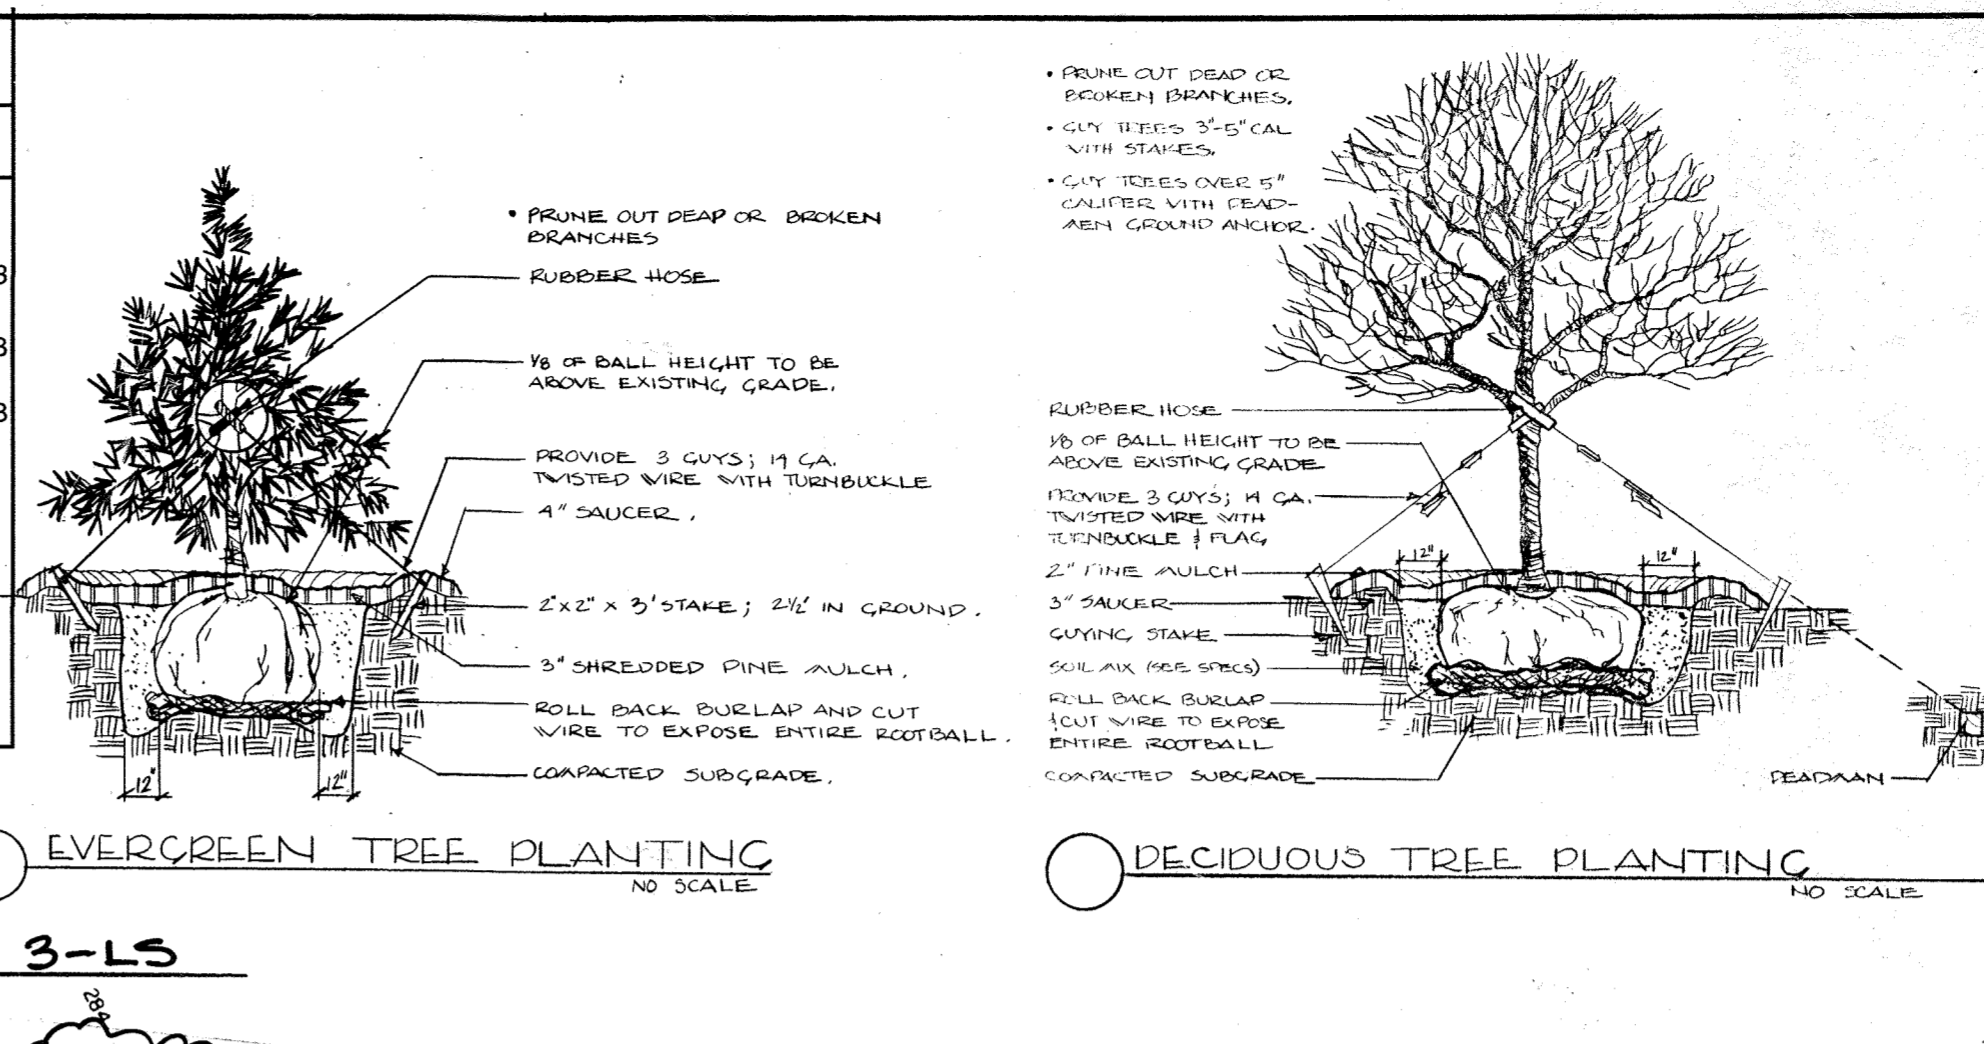 • PRUNE OUT DEAD OR BROKEN
BRANCHES
RUBBER HOSE
1/8 OF BALL HEIGHT TO BE
ABOVE EXISTING GRADE.
PROVIDE 3 GUYS; 14 GA.
TWISTED WIRE WITH TURNBUCKLE
4" SAUCER.
2"x2" x 3' STAKE; 2 1/2' IN GROUND.
3" SHREDDED PINE MULCH.
ROLL BACK BURLAP AND CUT
WIRE TO EXPOSE ENTIRE ROOTBALL.
COMPACTED SUBGRADE.
12"
12"
EVERGREEN TREE PLANTING
NO SCALE
• PRUNE OUT DEAD OR
BROKEN BRANCHES.
• GUY TREES 3"-5" CAL
WITH STAKES.
• GUY TREES OVER 5"
CALIPER WITH DEAD-
MEN GROUND ANCHOR.
RUBBER HOSE
1/8 OF BALL HEIGHT TO BE
ABOVE EXISTING GRADE
PROVIDE 3 GUYS; 14 GA.
TWISTED WIRE WITH
TURNBUCKLE & FLAG
12"
12"
2" PINE MULCH
3" SAUCER
GUYING STAKE
SOIL MIX (SEE SPECS)
ROLL BACK BURLAP
& CUT WIRE TO EXPOSE
ENTIRE ROOTBALL
COMPACTED SUBGRADE
DEADMAN
DECIDUOUS TREE PLANTING
NO SCALE
3-LS